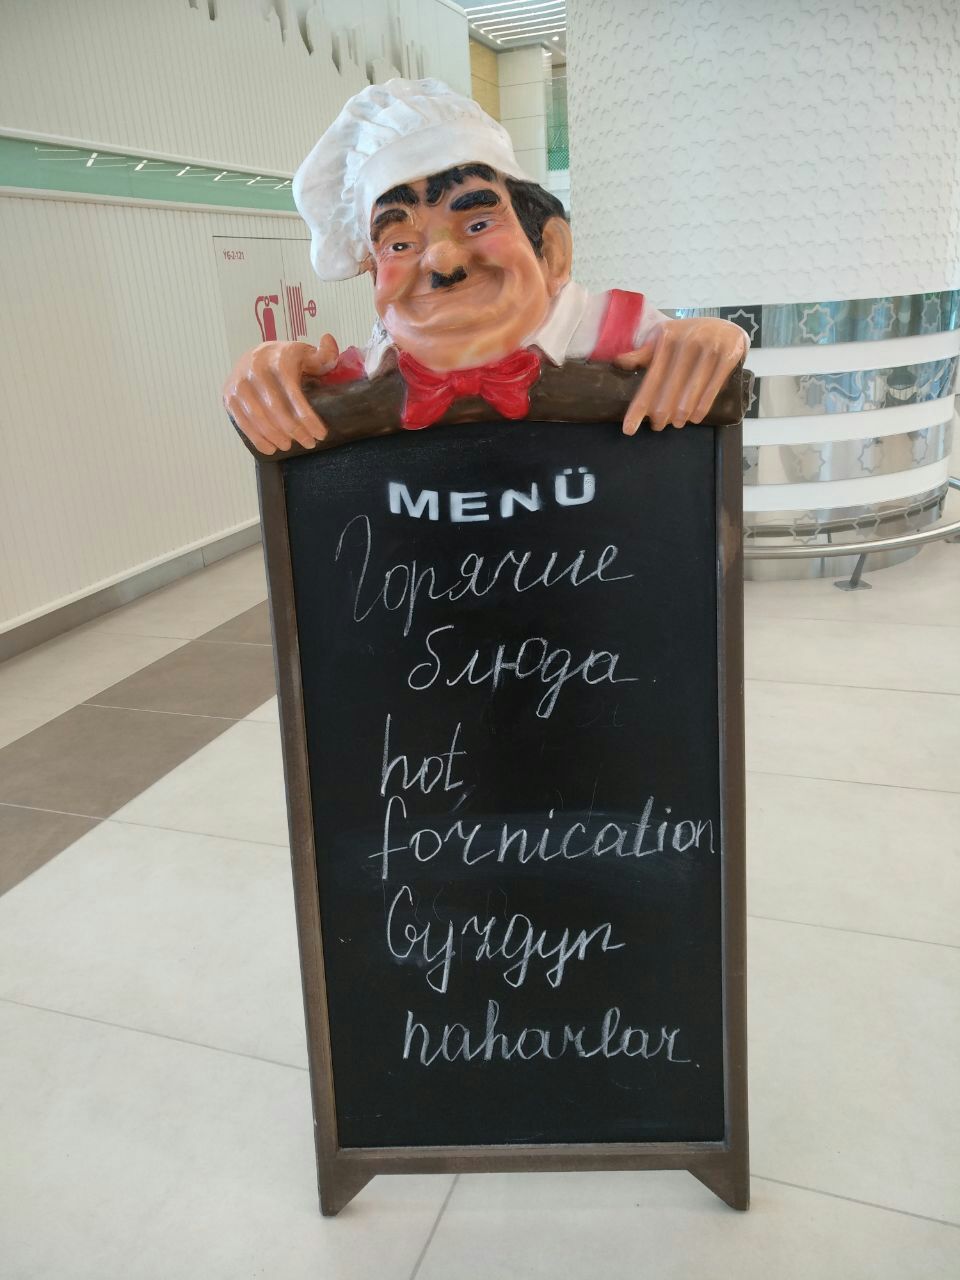 ÝG-2-121
MENÜ
Горячие
блюда
hot
fornication
Gyzgyn
naharlar